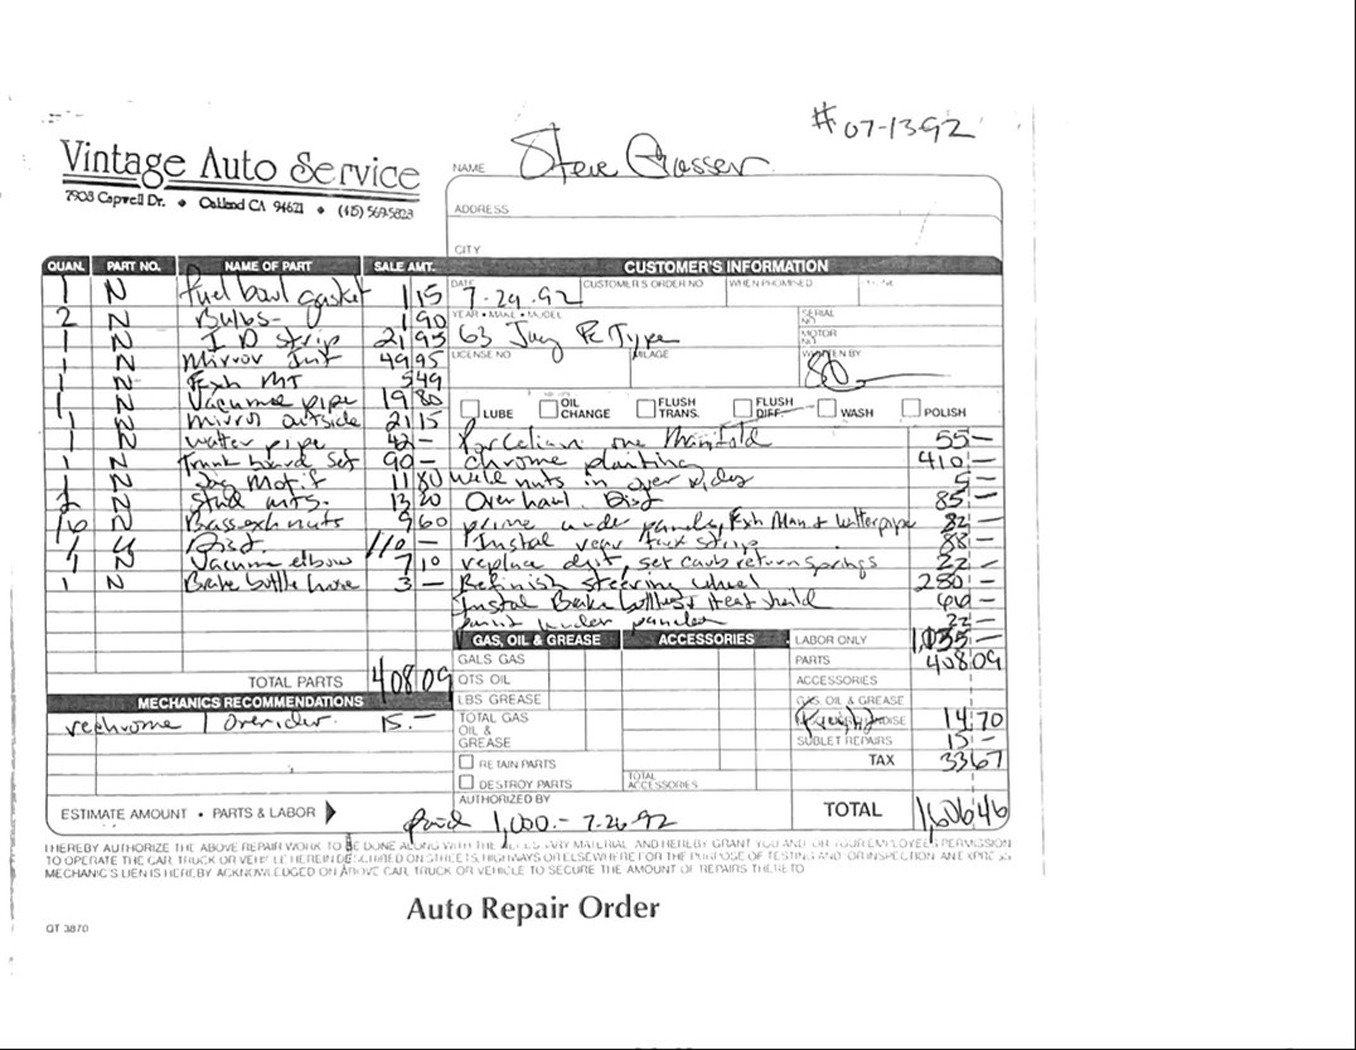 # 07-1392
Vintage Auto Service
7903 Capwell Dr. • Oakland CA 94621 • (415) 569-5823
NAME Steve
ADDRESS
CITY
QUAN. PART NO. NAME OF PART SALE AMT. CUSTOMER'S INFORMATION
DATE 7-29-92 CUSTOMER'S ORDER NO WHEN PROMISED
1 N fuel bowl gasket 1 15
2 N Bulbs- 1 90
YEAR • MAKE • MODEL 63 Jag E Type
SERIAL NO.
MOTOR NO.
1 N I D strip 21 95
1 N Mirror Int 49 95
LICENSE NO MILAGE WRITTEN BY
1 N Exh MT 5 49
1 N Vacume pipe 19 80
LUBE OIL CHANGE FLUSH TRANS. FLUSH DIFF. WASH POLISH
1 N mirror outside 21 15
1 N watter pipe 42 - Porcelian one Manifold 55-
1 N Trunk board set 90 - chrome planting 410-
1 N Jag Motif 11 80 Weld nuts in over rider 5-
2 N Stud mts. 13 20 Overhaul Dist 85-
16 N Brass exh nuts 9 60 prime under panels, Exh Man & Watterpipe 82-
1 Dist. 110 - Instal rear strip 88-
1 N Vacume elbow 7 10 replace dist, set carb return springs 22-
1 N Brake bottle hose 3 - Refinish steering wheel 280-
Instal Brake bottles & Heat sheild 66-
paint under panels 22-
GAS, OIL & GREASE ACCESSORIES LABOR ONLY 1,035-
GALS GAS PARTS 408 09
TOTAL PARTS 408 09 QTS OIL ACCESSORIES
MECHANICS RECOMMENDATIONS LBS GREASE GAS, OIL & GREASE
rechrome 1 overider. 15.- TOTAL GAS OIL & GREASE Freight 14 70
SUBLET REPAIRS 15-
RETAIN PARTS TAX 33 67
DESTROY PARTS TOTAL ACCESSORIES
AUTHORIZED BY
ESTIMATE AMOUNT • PARTS & LABOR paid 1,000.- 7-26-92 TOTAL 1,606 46
I HEREBY AUTHORIZE THE ABOVE REPAIR WORK TO BE DONE ALONG WITH THE NECESSARY MATERIAL AND HEREBY GRANT YOU AND OR YOUR EMPLOYEES PERMISSION
TO OPERATE THE CAR TRUCK OR VEHICLE HEREIN DESCRIBED ON STREETS HIGHWAYS OR ELSEWHERE FOR THE PURPOSE OF TESTING AND OR INSPECTION AN EXPRESS
MECHANIC'S LIEN IS HEREBY ACKNOWLEDGED ON ABOVE CAR TRUCK OR VEHICLE TO SECURE THE AMOUNT OF REPAIRS THERETO
Auto Repair Order
GT 3870